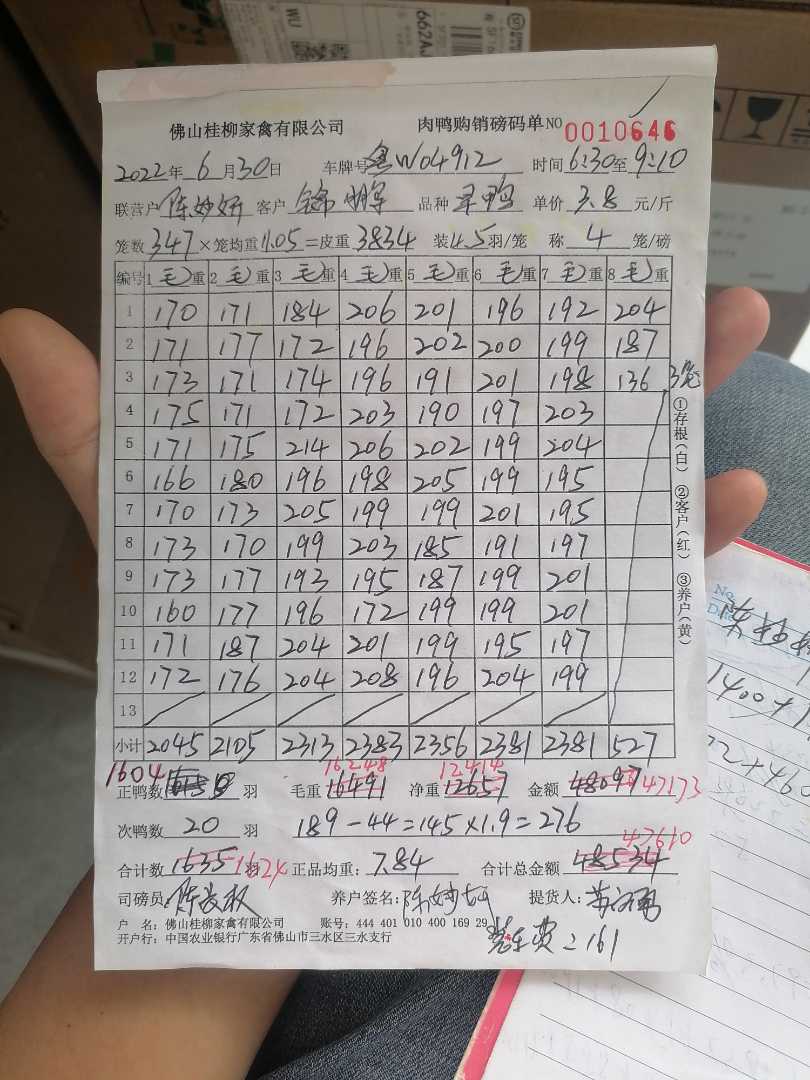 WU
662A
佛山桂柳家禽有限公司 肉鸭购销磅码单NO 0010646
2022年 6 月30日 车牌号粤W04912 时间6:30至9:10
联营户陈妙妍 客户 锦 品种 旱鸭 单价 3.8 元/斤
笼数347×笼均重11.05=皮重3834 装4.5羽/笼 称 4 笼/磅
编号 1毛重 2毛重 3毛重 4毛重 5毛重 6毛重 7毛重 8毛重
1 170 171 184 206 201 196 192 204
2 171 177 172 196 202 200 199 187
3 173 171 174 196 191 201 198 136 3笼
4 175 171 172 203 190 197 203
5 171 175 214 206 202 199 204
6 166 180 196 198 205 199 195
7 170 173 205 199 199 201 195
8 173 170 199 203 185 191 197
9 173 177 193 195 187 199 201
10 160 177 196 172 199 199 201
11 171 187 204 201 199 195 197
12 172 176 204 208 196 204 199
13
小计 2045 2105 2313 2383 2356 2381 2381 527
①存根(白) ②客户(红) ③养户(黄)
1604 16248 12414
正鸭数 羽 毛重 16491 净重 12657 金额 48097 47173
次鸭数 20 羽 189-44=145×1.9=276
47610
合计数 1635 羽 1624 正品均重: 7.84 合计总金额 48534
司磅员: 养户签名: 提货人:
户 名: 佛山桂柳家禽有限公司 账号: 444 401 010 400 169 29
开户行: 中国农业银行广东省佛山市三水区三水支行
费=161
No
Date
1400+
22+460